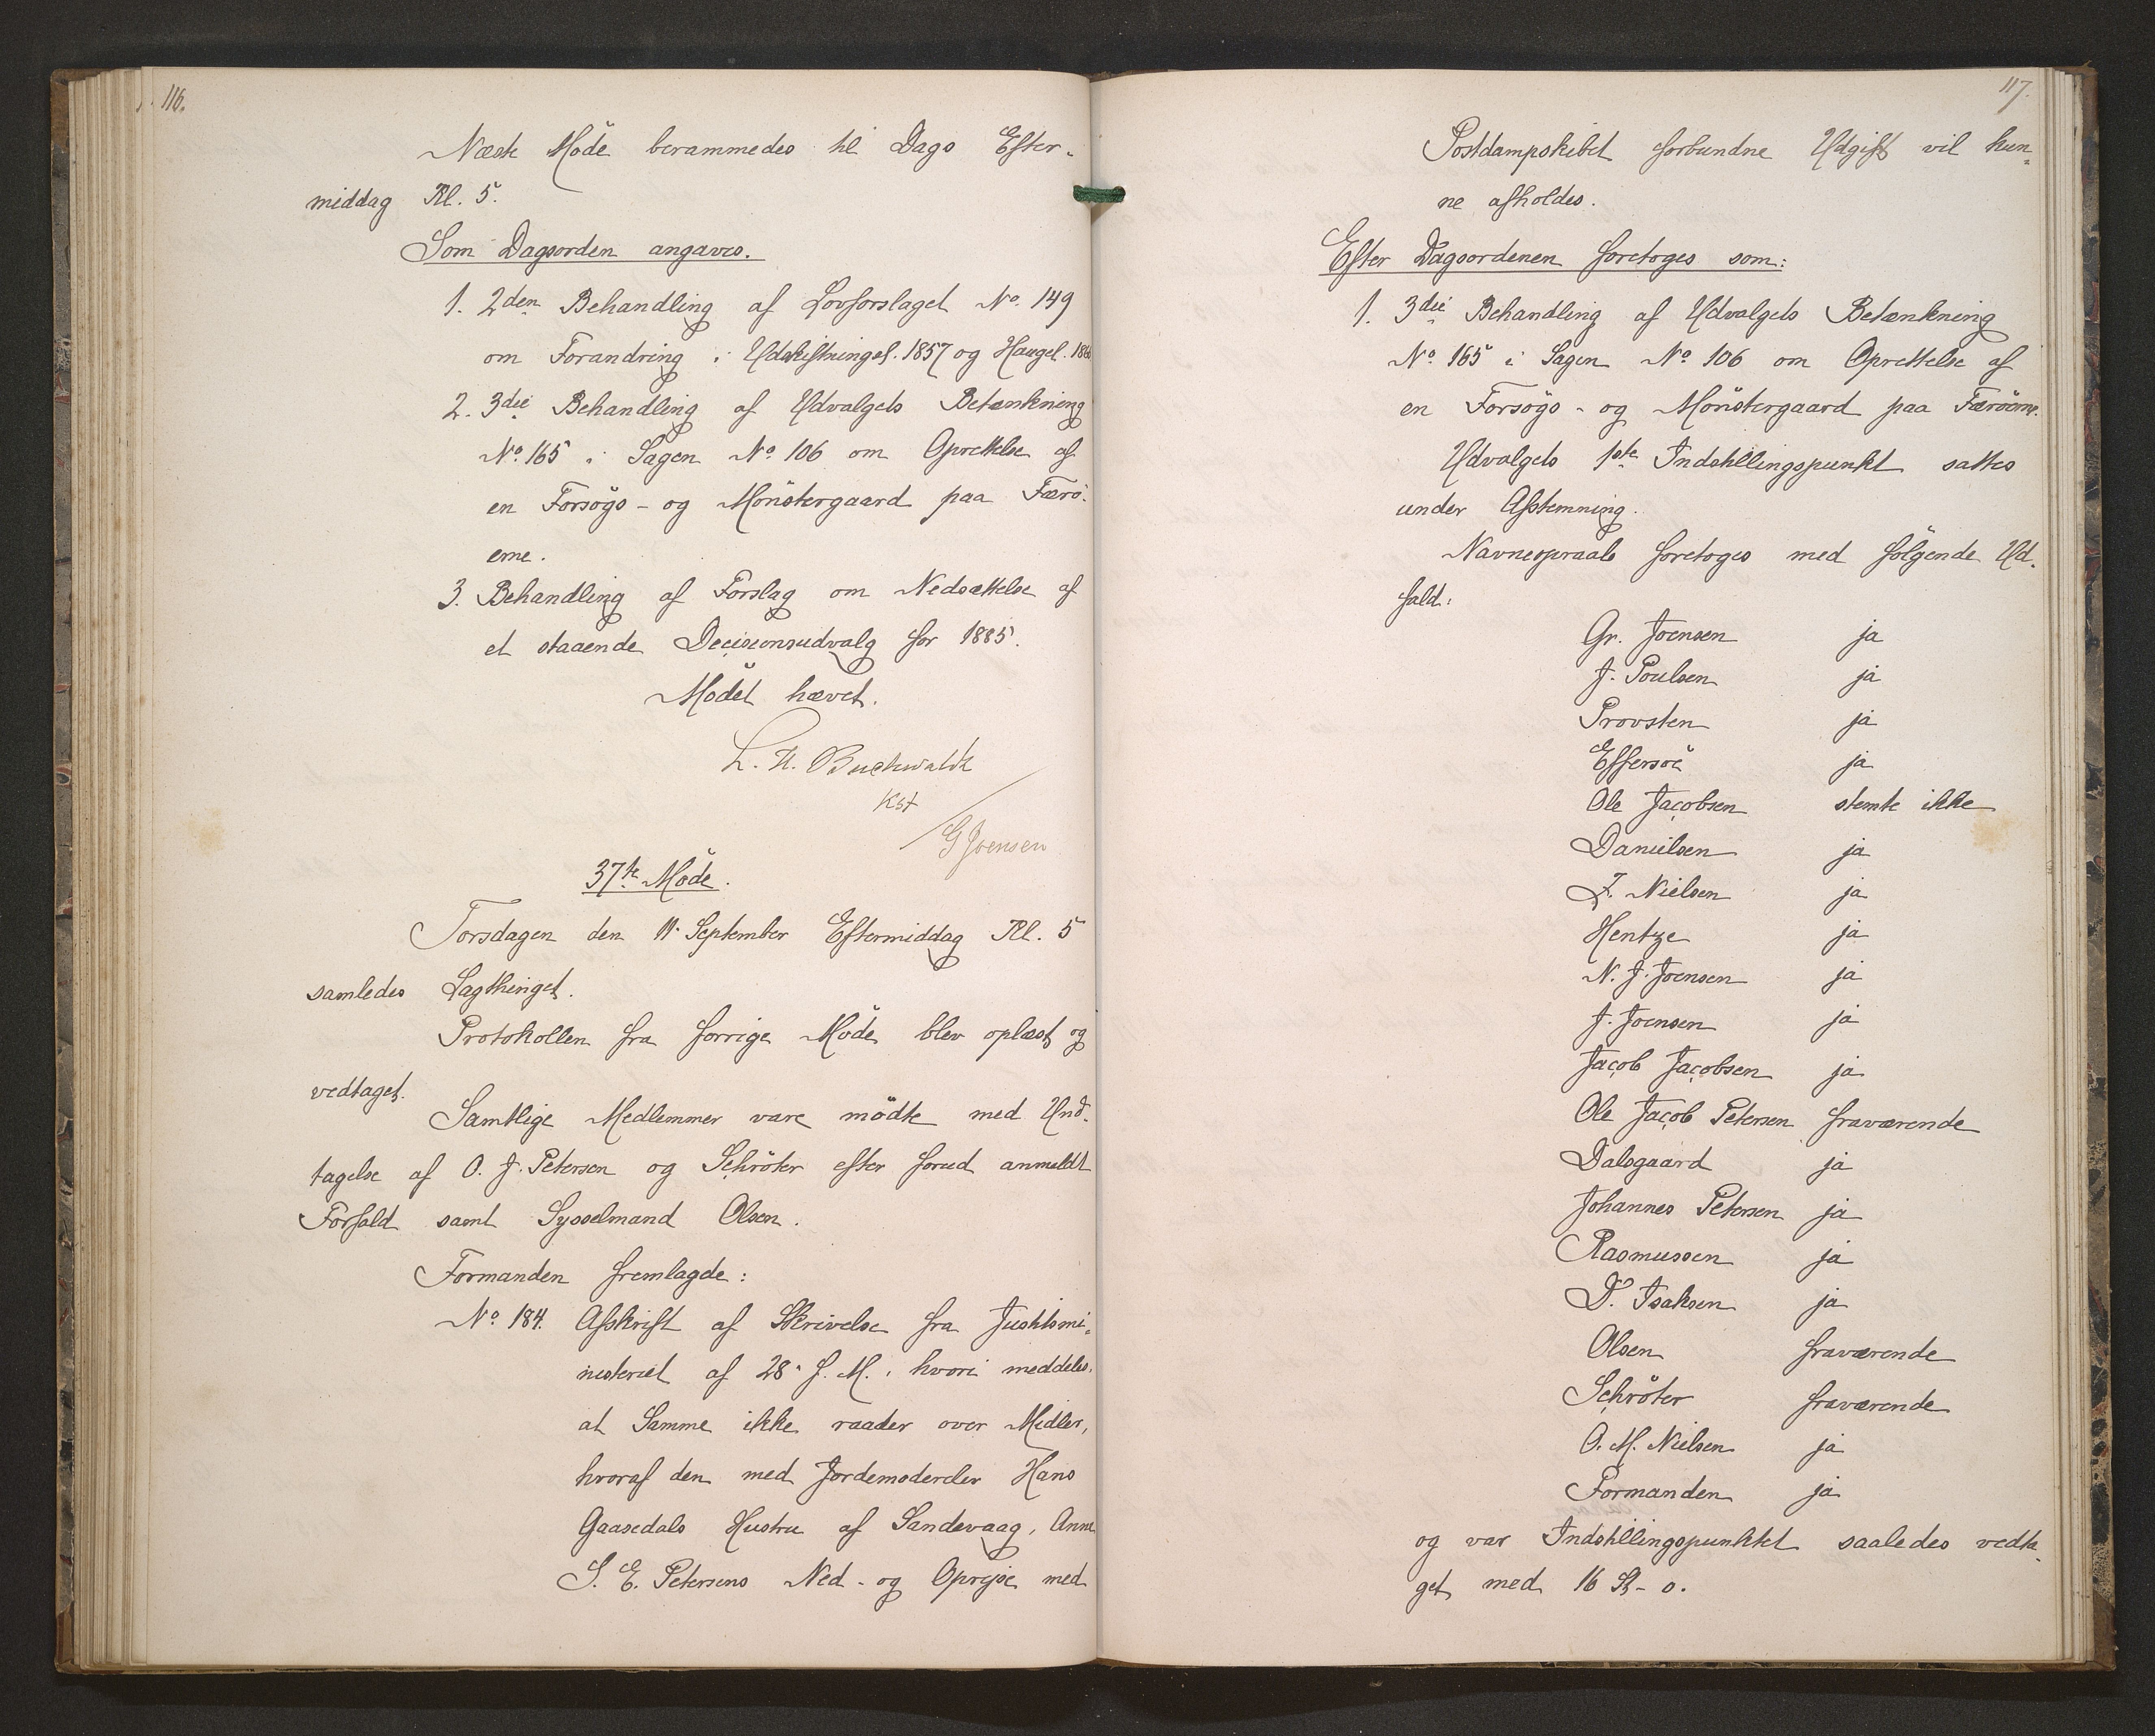 116.
Næste Möde berammedes til Dags Efter-
middag Kl. 5.
Som Dagsorden angaves.
1. 2den Behandling af Lovforslaget No. 149
om Forandring i Udskiftningsl. 1857 og Haugel. 1866
2. 3die Behandling af Udvalgets Betænkning
No. 165 i Sagen No. 106 om Oprettelse af
en Forsögs- og Mönstergaard paa Færö-
erne.
3. Behandling af Forslag om Nedsættelse af
et staaende Decisionsudvalg for 1885.
Mödet hævet.
Buchwaldt
Kst
G Joensen
37te Möde.
Torsdagen den 11. September Eftermiddag Kl. 5
samledes Lagthinget.
Protokollen fra forrige Möde blev oplæst og
vedtaget.
Samtlige Medlemmer vare mödte med Und-
tagelse af O. J. Petersen og Schröter efter forud anmeldt
Forfald samt Sysselmand Olsen.
Formanden fremlagde:
No. 184. Afskrift af Skrivelse fra Justitsmi-
nisteriet af 28. f. M., hvori meddeles,
at Samme ikke raader over Midler,
hvoraf den med Jordemoderelev Hans
Gaasedals Hustru af Sandevaag, Anne
S. E. Petersens Ned- og Oprejse med
117.
Postdampskibet forbundne Udgift vil kun-
ne afholdes.
Efter Dagsordenen foretoges som:
1. 3die Behandling af Udvalgets Betænkning
No. 165 i Sagen No. 106 om Oprettelse af
en Forsögs- og Mönstergaard paa Færöerne.
Udvalgets 1ste Indstillingspunkt sattes
under Afstemning.
Navneopraab foretoges med fölgende Ud-
fald:
Gr. Joensen ja
J. Poulsen ja
Provsten ja
Effersöe ja
Ole Jacobsen stemte ikke
Danielsen ja
Z. Nielsen ja
Hentze ja
N. J. Joensen ja
J. Joensen ja
Jacob Jacobsen ja
Ole Jacob Petersen fraværende
Dalsgaard ja
Johannes Petersen ja
Rasmussen ja
D. Isaksen ja
Olsen fraværende
Schröter fraværende
O. M. Nielsen ja
Formanden ja
og var Indstillingspunktet saaledes vedta-
get med 16 St - 0.